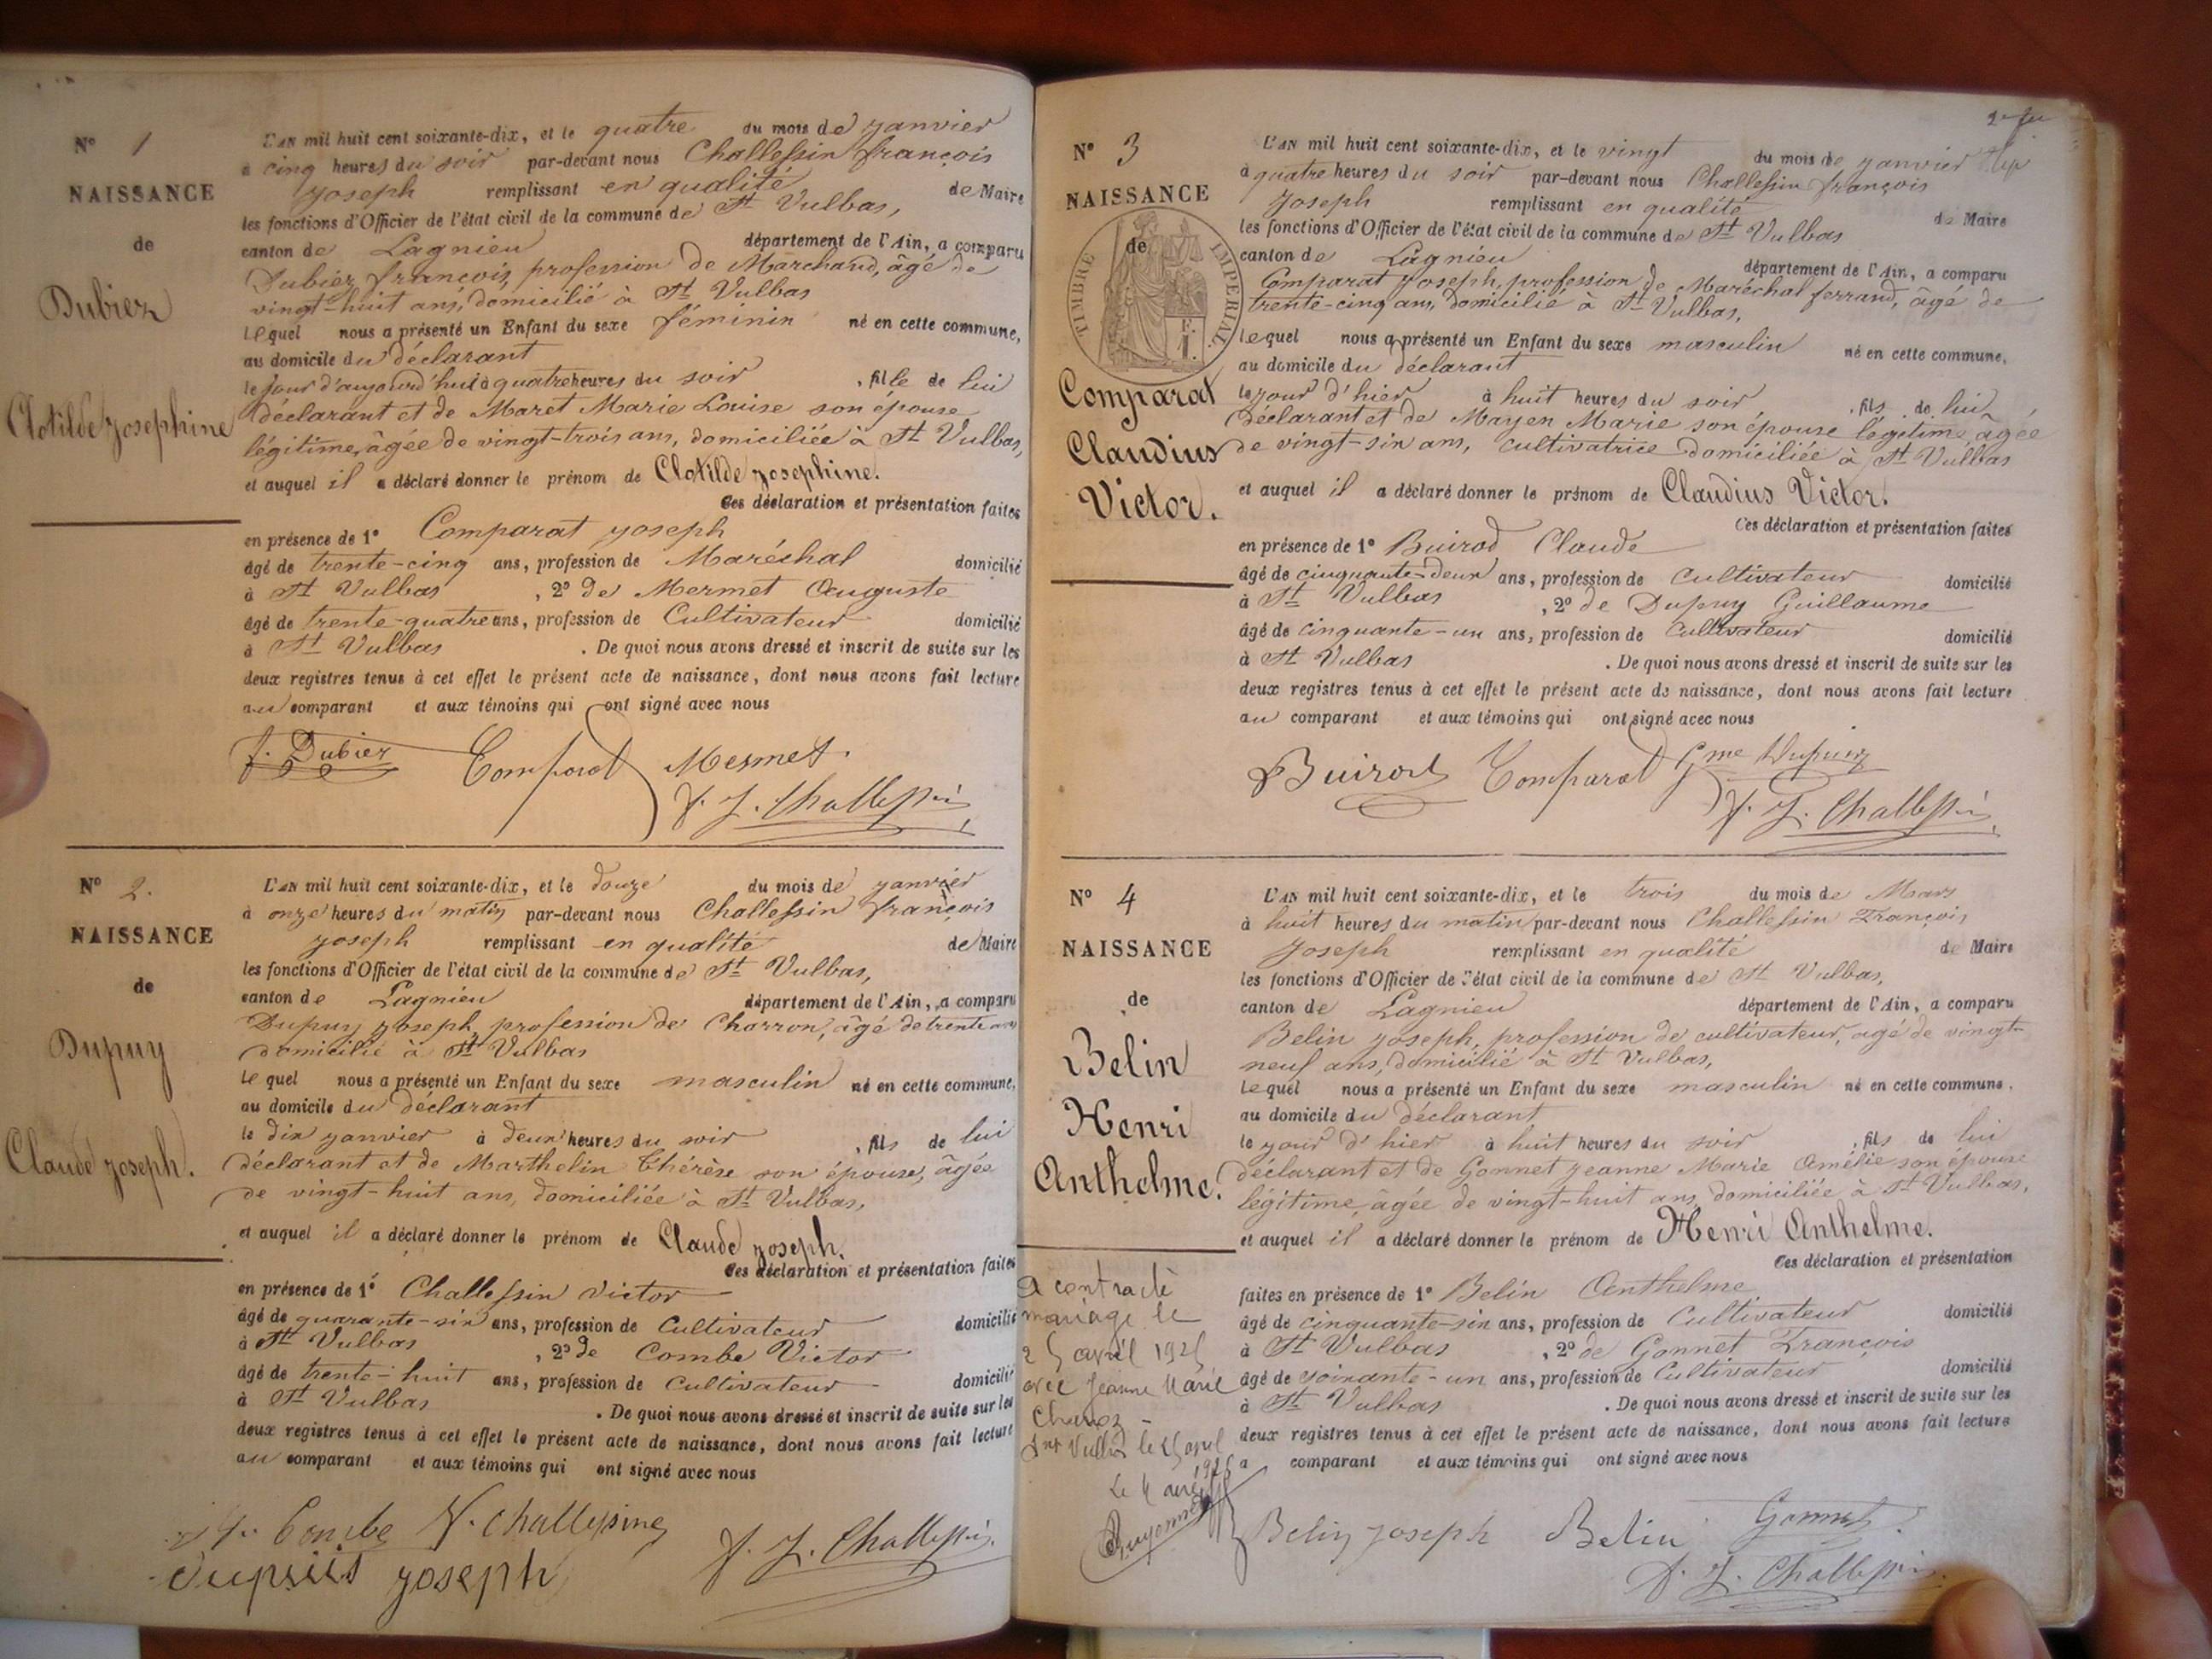 N° 1
NAISSANCE
de
Dubiez
Clotilde Josephine
L'AN mil huit cent soixante-dix, et le quatre du mois de Janvier
à cinq heures du soir par-devant nous Challessin françois
Joseph remplissant en qualité de Maire
les fonctions d'Officier de l'état civil de la commune de St Vulbas,
canton de Lagnieu département de l'Ain, a comparu
Dubiez françois, profession de Marchand, âgé de
vingt-huit ans, domicilié à St Vulbas
Lequel nous a présenté un Enfant du sexe féminin né en cette commune,
au domicile du déclarant
le jour d'aujourd'hui à quatre heures du soir , fille de lui
déclarant et de Maret Marie Louise son épouse
légitime, âgée de vingt-trois ans, domiciliée à St Vulbas,
et auquel il a déclaré donner le prénom de Clotilde Josephine.
Ces déclaration et présentation faites
en présence de 1° Comparat Joseph
âgé de trente-cinq ans, profession de Maréchal domicilié
à St Vulbas , 2° de Mermet Auguste
âgé de trente-quatre ans, profession de Cultivateur domicilié
à St Vulbas . De quoi nous avons dressé et inscrit de suite sur les
deux registres tenus à cet effet le présent acte de naissance, dont nous avons fait lecture
au comparant et aux témoins qui ont signé avec nous
f. Dubiez Comparat Mermet.
f. J. Challessin
N° 2.
NAISSANCE
de
Dupuy
Claude Joseph.
L'AN mil huit cent soixante-dix, et le douze du mois de Janvier
à onze heures du matin par-devant nous Challessin françois
Joseph remplissant en qualité de Maire
les fonctions d'Officier de l'état civil de la commune de St Vulbas,
canton de Lagnieu département de l'Ain, a comparu
Dupuy Joseph, profession de Charron, âgé de trente ans
domicilié à St Vulbas
Le quel nous a présenté un Enfant du sexe masculin né en cette commune,
au domicile du déclarant
le dix Janvier à deux heures du soir , fils de lui
déclarant et de Marthelin Thérèse son épouse, âgée
de vingt-huit ans, domiciliée à St Vulbas,
et auquel il a déclaré donner le prénom de Claude Joseph.
Ces déclaration et présentation faites
en présence de 1° Challessin Victor
âgé de quarante-six ans, profession de Cultivateur domicilié
à St Vulbas , 2° de Combe Victor
âgé de trente-huit ans, profession de Cultivateur domicilié
à St Vulbas . De quoi nous avons dressé et inscrit de suite sur les
deux registres tenus à cet effet le présent acte de naissance, dont nous avons fait lecture
au comparant et aux témoins qui ont signé avec nous
Combe V. Challessin
Dupuis Joseph f. J. Challessin
N° 3
NAISSANCE
de
TIMBRE IMPERIAL
Comparat
Claudius
Victor.
L'AN mil huit cent soixante-dix, et le vingt du mois de Janvier
à quatre heures du soir par-devant nous Challessin françois
Joseph remplissant en qualité de Maire
les fonctions d'Officier de l'état civil de la commune de St Vulbas
canton de Lagnieu département de l'Ain, a comparu
Comparat Joseph, profession de Maréchal ferrand, âgé de
trente-cinq ans, domicilié à St Vulbas,
Lequel nous a présenté un Enfant du sexe masculin né en cette commune,
au domicile du déclarant
le jour d'hier à huit heures du soir , fils de lui
déclarant et de Mayen Marie son épouse légitime, âgée
de vingt-six ans, cultivatrice domiciliée à St Vulbas
et auquel il a déclaré donner le prénom de Claudius Victor.
Ces déclaration et présentation faites
en présence de 1° Buirod Claude
âgé de cinquante-deux ans, profession de Cultivateur domicilié
à St Vulbas , 2° de Dupuy Guillaume
âgé de cinquante-un ans, profession de Cultivateur domicilié
à St Vulbas . De quoi nous avons dressé et inscrit de suite sur les
deux registres tenus à cet effet le présent acte de naissance, dont nous avons fait lecture
au comparant et aux témoins qui ont signé avec nous
Buirod Comparat Gme Dupuiz
f. J. Challessin
N° 4
NAISSANCE
de
Belin
Henri
Anthelme.
L'AN mil huit cent soixante-dix, et le trois du mois de Mars
à huit heures du matin par-devant nous Challessin François
Joseph remplissant en qualité de Maire
les fonctions d'Officier de l'état civil de la commune de St Vulbas,
canton de Lagnieu département de l'Ain, a comparu
Belin Joseph, profession de cultivateur, agé de vingt-
neuf ans, domicilié à St Vulbas,
Lequel nous a présenté un Enfant du sexe masculin né en cette commune.
au domicile du déclarant
le jour d'hier à huit heures du soir , fils de lui
déclarant et de Gonnet Jeanne Marie Amélie son épouse
légitime, âgée de vingt-huit ans, domiciliée à St Vulbas,
et auquel il a déclaré donner le prénom de Henri Anthelme.
Ces déclaration et présentation
faites en présence de 1° Belin Anthelme
âgé de cinquante-six ans, profession de Cultivateur domicilié
à St Vulbas , 2° de Gonnet François
âgé de soixante-un ans, profession de Cultivateur domicilié
à St Vulbas . De quoi nous avons dressé et inscrit de suite sur les
deux registres tenus à cet effet le présent acte de naissance, dont nous avons fait lecture
a comparant et aux témoins qui ont signé avec nous
Belin Joseph Belin Gonnet
f. J. Challessin
A contracté
mariage le
avril
avec Jeanne Marie